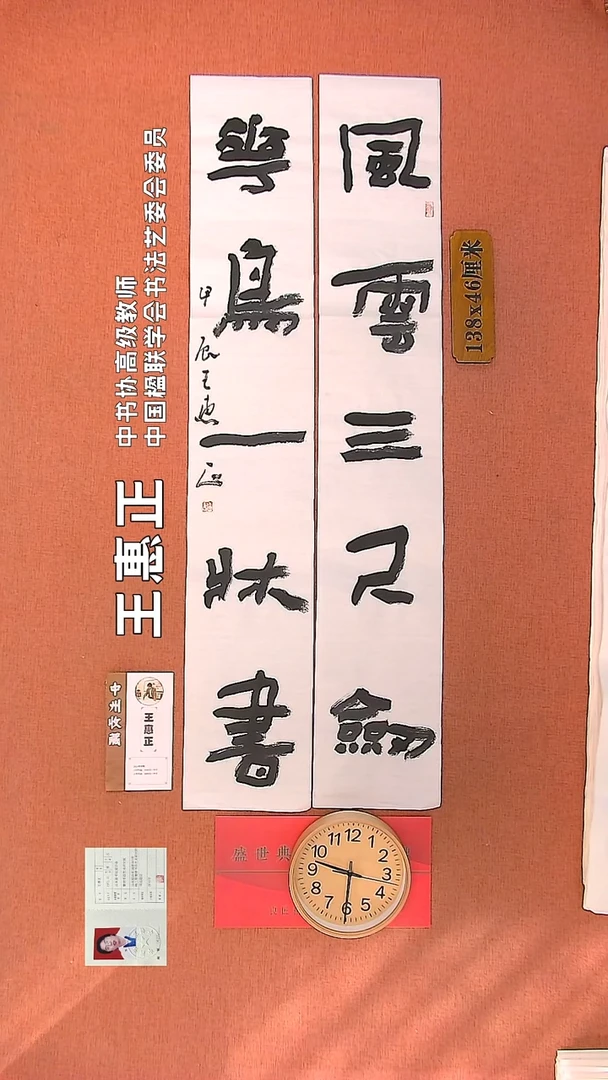 風雲三尺劍
鳥一牀書
甲辰王惠正
138x46厘米
中书协高级教师
中国楹联学会书法艺委会委员
王惠正
王惠正
盛世典
12 1 2 3 4 5 6 7 8 9 10 11